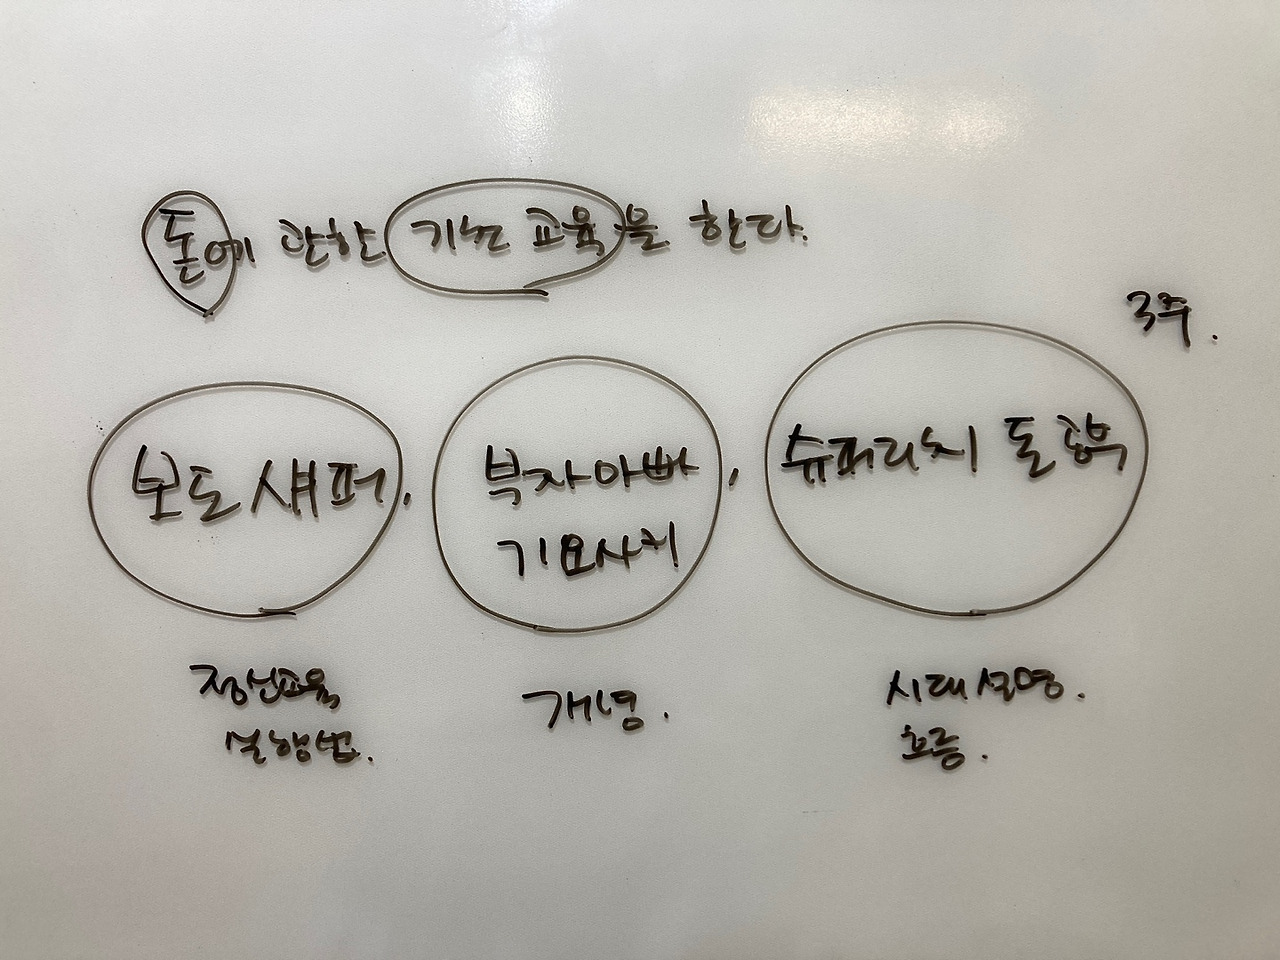 돈에 관한 기초 교육을 한다.
3주.
보도 섀퍼,
부자아빠
기요사키,
슈퍼리치 돈 공부
정신교육
실행법.
개념.
시대 설명.
흐름.